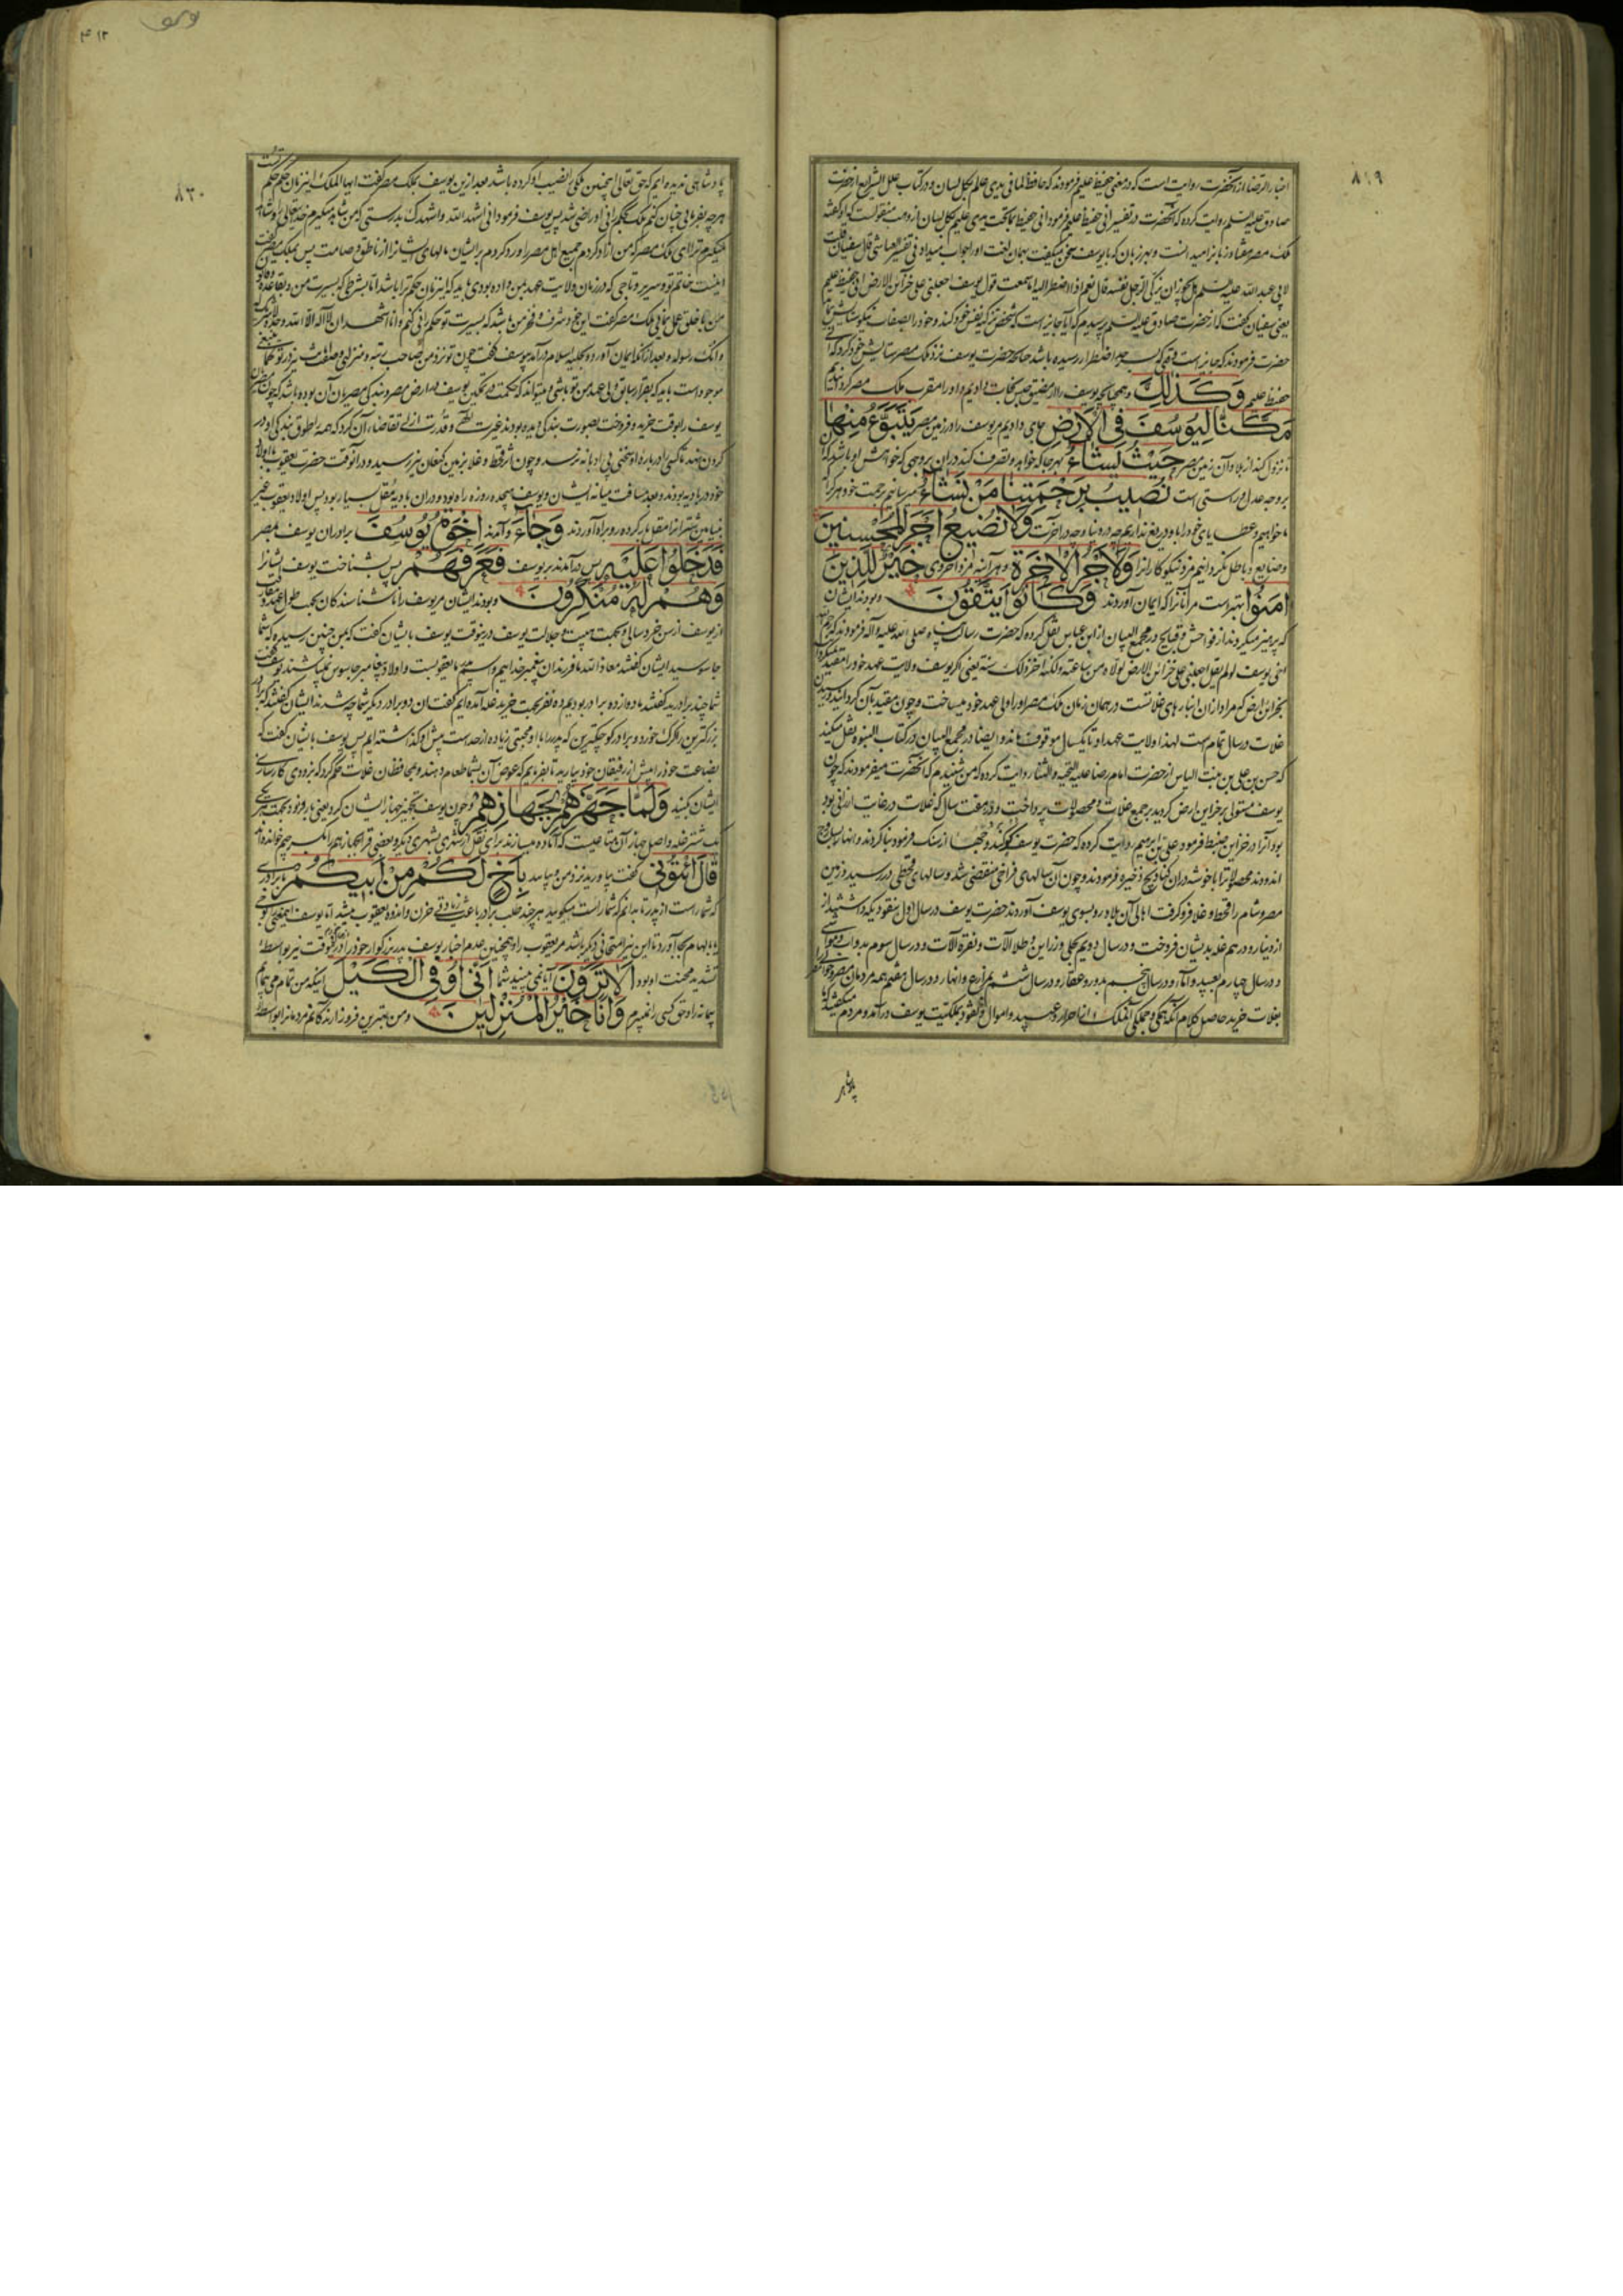 ۸۱۹
اخبار الرضا از آنحضرت روایت است که در معنی حفیظ علیم فرمودند که حافظ لما فی یدی عالم بکل لسان و در کتاب علل الشرایع از حضرت
صادق علیه السلم روایت کرده که آنحضرت در تفسیر انی حفیظ علیم فرمود انی حفیظ بما تحت یدی علیم بکل لسان
ملک مصر هفتاد زبانرا میدانست و بهر زبان که با یوسف سخن میگفت بهمان لغت او را جواب میداد و فی تفسیر العیاشی قال سفیان قلت
لابی عبد الله علیه السلم یجوز ان یزکی الرجل نفسه قال نعم اذا اضطر الیه اما سمعت قول یوسف اجعلنی علی خزآئن الارض انی حفیظ علیم
یعنی سفیان گفت که از حضرت صادق علیه السلم پرسیدم که آیا جایز است که شخصی تزکیه نفس خود کند و خود را بصفات نیکو ستایش نماید
حضرت فرمودند که جایز است وقتی که بحد اضطرار رسیده باشد چنانکه حضرت یوسف نزد ملک مصر ستایش خود کرد که انی
حفیظ علیم وَكَذٰلِكَ و همچنانچه یوسف را از مضیق حبس نجات دادیم و او را مقرب ملک مصر کردانیدیم
مَكَّنَّا لِيُوسُفَ فِي الْاَرْضِ جای دادیم مر یوسف را در زمین مصر يَتَبَوَّءُ مِنْهَا
تا نزول کند از بلاد آن زمین مصر حَيْثُ يَشَاءُ بهر جا که خواهد و تصرف کند در آن بروجهی که خواهش او باشد
بر وجه عدل و راستی است نُصِيبُ بِرَحْمَتِنَا مَنْ نَشَاءُ میرسانیم برحمت خود هر کرا
ما خواهیم و عطایای خود را باو دریغ نداریم چه در دنیا و چه در آخرت وَلَا نُضِيعُ اَجْرَ الْمُحْسِنِينَ
و ضایع و باطل نگردانیم مزد نیکوکارانرا وَلَاَجْرُ الْاٰخِرَةِ و هرآینه مزد اخروی خَيْرٌ لِلَّذِينَ
اٰمَنُوا بهتر است مر آنانرا که ایمان آوردند وَكَانُوا يَتَّقُونَ و بودند ایشان
که پرهیز میکردند از فواحش و قبایح در مجمع البیان از ابن عباس نقل کرده که حضرت رسالت پناه صلی الله علیه و آله فرمودند که رحم الله
اخی یوسف لو لم یقل اجعلنی علی خزائن الارض لولاه من ساعته ولکنه اخر ذلک سنة یعنی اگر یوسف ولایت عهد خود را مقید نمیکرد
بخزائن ارض که مراد از آن انبارهای غلاتست در همان زمان ملک مصر او را ولی عهد خود میساخت و چون مقید بآن گردانید
غلات در سال تمام است لهذا ولایت عهد او تا یکسال موقوف ماند و ایضا در مجمع البیان از کتاب النبوه نقل میکند
که حسن بن علی بن بنت الیاس از حضرت امام رضا علیه التحیه و الثنا روایت کرده که من شنیدم که آنحضرت میفرمودند که چون
یوسف مستولی بر خزاین ارض گردید بر جمیع غلات و محصولات پرداخت و در هفت سال که غلات در غایت ارزانی بود
بود آنرا در خزاین ضبط فرمود علی بن ابرهیم روایت کرده که حضرت یوسف از سنگ فرمود بنا کردند و انها را
اندودند محصولاترا با خوشه در آن کنادیج ذخیره فرمودند و چون آن سالهای فراخی منقضی شد و سالهای قحطی در رسید در زمین
مصر و شام را قحط و غلا فرو گرفت اهالی آن بلاد رو بسوی یوسف آوردند حضرت یوسف در سال اول بنقود یکه داشتند از
از دینار و درهم غله بدیشان فروخت و در سال دویم بحلی و زراین و طلا آلات و نقره آلات و در سال سوم بدواب و مواشی
و در سال چهارم بعبید و اماء و در سال پنجم بدور و عقار و در سال ششم بمزارع و انهار و در سال هفتم همه مردمان مصر
بغلات خرید حاصل کلام آنکه همگی و جملگی آنملک از احرار و عبید و اموال و نقود بملکیت یوسف درآمد و مردم میگفتند که ما
پادشاهی
۴۱۲
۸۲۰
پادشاهی ندیده ایم که حق تعالی اینچنین ملکی نصیب او کرده باشد بعد از این یوسف بملک مصر گفت ایها الملک اینزمان حکم حکم تست
هرچه بفرمائی چنان کنم ملک بحکمرانی او راضی شد پس یوسف فرمود انی اشهد الله و اشهدک بدرستی که من شاهد میگیرم خدیتعالی را و شاهد
میگیرم ترا ای ملک مصر که من آزاد کردم جمیع اهل مصر را و رد کردم بر ایشان مالهای ایشانرا از ناطق و صامت پس بملک مصر گفت
اینست خاتم تو و سریر و تاجی که در زمان ولایت عهد بمن داده بودی باید که اینزمان حکم ترا باشد اما بشرطی که بسیرت من و بقاعده
من با خلق عمل نمائی ملک مصر گفت این خود شرف و فخر من باشد که بسیرت تو حکمرانی کنم و انا اشهد ان لا اله الا الله وحده لا شریک له
و انک رسوله و بعد از آنکه ایمان آورد و بحلیه اسلام درآمد بیوسف گفت چون تو نزد من صاحب رتبه و منزلی
موجود است باید که بقرار سابق ولی عهد من تو باشی و میتواند که حکمت در تمکین یوسف در ارض مصر و بندگی مصریان آن بوده باشد که چون مصریان
یوسف را بوقت خرید و فروخت بصورت بندگی دیده بودند غیرت الهی و قدرت ازلی تقاضاء آن کرد که همه را طوق بندگی او در
گردن نهد تا کسی را درباره او سخنی بی ادبانه نرسد و چون اثر قحط و غلا بزمین کنعان نیز رسید و در آنوقت حضرت یعقوب با اولاد
خود در بادیه بودند و بعد مسافت میانه ایشان و یوسف هیجده روزه راه بود و در آن بادیه مقل بسیار بود پس اولاد یعقوب غیر
بنیامین شترانرا مقل بار کرده رو براه آوردند وَجَاءَ و آمدند اِخْوَةُ يُوسُفَ برادران یوسف بمصر
فَدَخَلُوا عَلَيْهِ پس درآمدند بر یوسف فَعَرَفَهُمْ پس بشناخت یوسف ایشانرا
وَهُمْ لَهُ مُنْكِرُونَ و بودند ایشان مر یوسف را ناشناسندگان بجهت طول عهد و مفارقت
از یوسف از سن خردسالی و بجهت هیبت و جلالت یوسف درینوقت یوسف بایشان گفت که من چنین رسیده که شما
جاسوسید ایشان گفتند معاذ الله ما فرزندان پیغمبر خداهیم و اسم پدر ما یعقوبست و اولاد پیغامبر جاسوس نمیباشند یوسف گفت
شما چند برادرید گفتند ما دوازده برادر بودیم ده نفر بجهت خرید غله آمده ایم گفت آن دو برادر دیگر شما چه شدند ایشان گفتند که برادر
بزرگترین را گرگ خورد و برادر کوچکترین که پدر را با او محبتی زیاده از حد است پیش او گذاشته ایم پس یوسف بایشان گفت که
بضاعت خود را پیش از رفیقان خود بیارید تا بفرمایم که عوض آن بشما طعام دهند و بمحافظان غلات حکم کرد که بزودی کارسازی
ایشان کنید وَلَمَّا جَهَّزَهُمْ بِجَهَازِهِمْ و چون یوسف تجهیز جهاز ایشان کرد یعنی بار نمود بجهت هر یکی
یک شتر غله و اصل جهاز آن متاعیست که آماده میسازند برای نقل از شهری بشهری دیگر و بعضی قراء بجهازهم بکسر جیم خوانده اند
قَالَ ائْتُونِي گفت بیاورید نزد من و بیایید بِاَخٍ لَكُمْ مِنْ اَبِيكُمْ با برادری
که شما راست از پدر تا بدانم که شما راست میگویید هر چند طلب برادر باعث زیادتی حزن و اندوه یعقوب میشد اما یوسف
بالهام بجا آورد تا این نیز امتحانی دیگر باشد مر یعقوب را و همچنین عدم اخبار یوسف پدر بزرگوار خود را در آنوقت نیز بواسطه
تشدید محنت او بود اَلَا تَرَوْنَ آیا نمی بینید شما اَنِّي اُوفِي الْكَيْلَ اینکه من تمام می پیمایم
پیمانه را و حق کسی را نمیبرم وَاَنَا خَيْرُ الْمُنْزِلِينَ و من بهترین فرود آرندگانم مردمانرا بواسطه